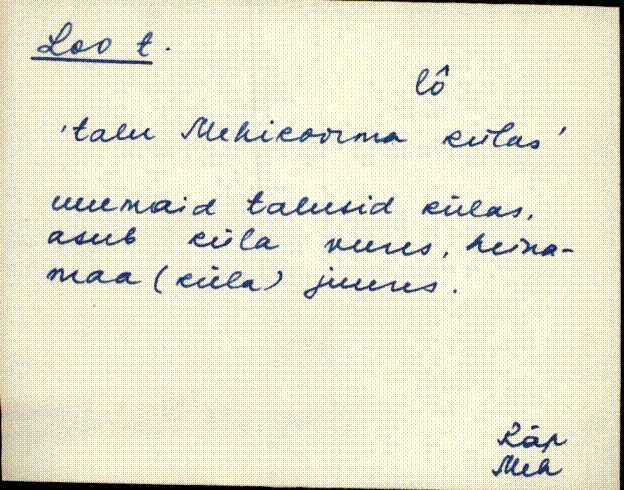 Loo t.
lô
'talu Mehikoorma külas'
uuemaid talusid külas,
asub küla veeres, heina-
maa (küla) juures.
Räp
Meh